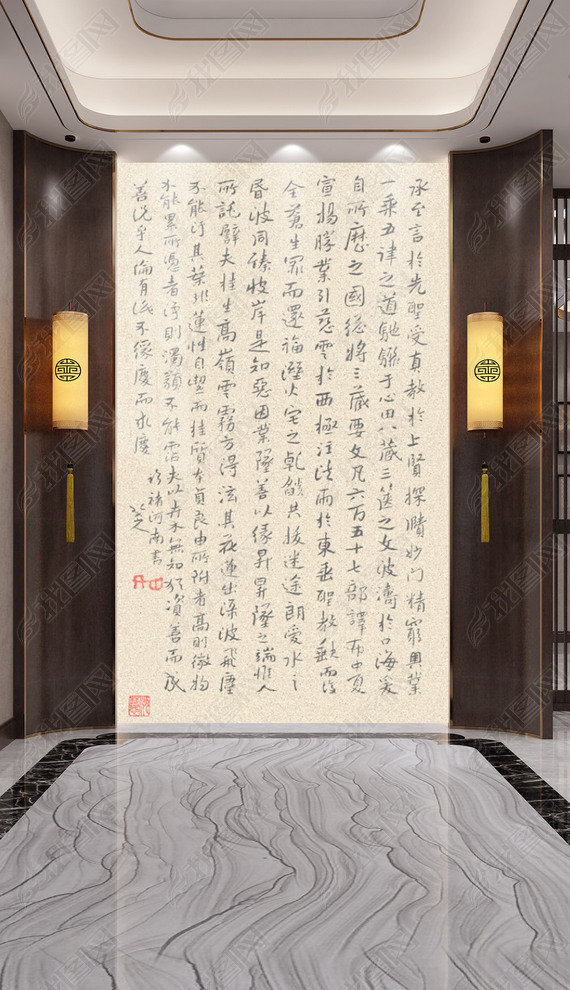 承至言於先聖受真教於上賢探賾妙門精窮奧業
一乘五律之道馳驟于心田八藏三篋之文波濤於口海爰
自所歷之國總將三藏要文凡六百五十七部譯布中夏
宣揚勝業引慈雲於西極注法雨於東垂聖教缺而復
全蒼生罪而還福溼火宅之乾燄共拔迷途朗愛水之
昏波同臻彼岸是知惡因業墜善以緣昇昇墜之端惟人
所託譬夫桂生高嶺雲霧方得泫其花蓮出淥波飛塵
不能汙其葉非蓮性自潔而桂質本貞良由所附者高則微物
不能累所憑者淨則濁類不能霑夫以卉木無知猶資善而成
善況乎人倫有識不緣慶而求慶
臨褚河南書
我图网